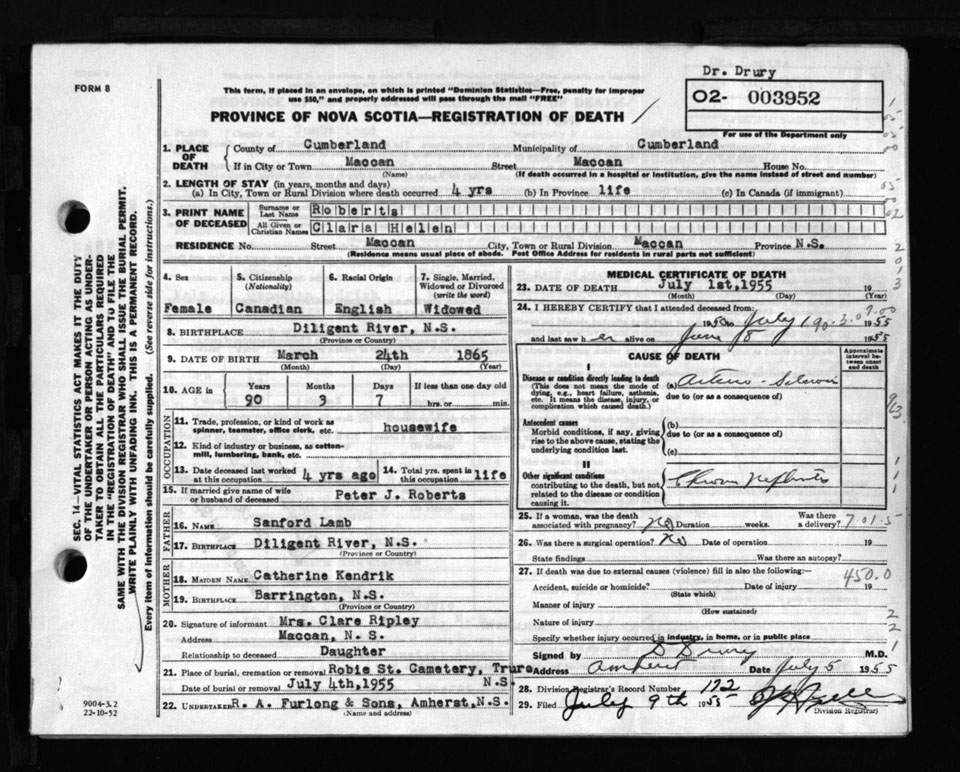 Dr. Drury
FORM 8
This form, if placed in an envelope, on which is printed "Dominion Statistics—Free, penalty for improper
use $50," and properly addressed will pass through the mail "FREE"
02- 003952
For use of the Department only
PROVINCE OF NOVA SCOTIA—REGISTRATION OF DEATH
1. PLACE OF DEATH
County of Cumberland Municipality of Cumberland
If in City or Town Maccan Street Maccan House No.
(Name) (If death occurred in a hospital or institution, give the name instead of street and number)
2. LENGTH OF STAY (in years, months and days)
(a) In City, Town or Rural Division where death occurred 4 yrs (b) In Province life (c) In Canada (if immigrant)
3. PRINT NAME OF DECEASED
Surname or Last Name Roberts
All Given or Christian Names Clara Helen
RESIDENCE No. Street Maccan City, Town or Rural Division Maccan Province N.S.
(Residence means usual place of abode. Post Office Address for residents in rural parts not sufficient)
4. Sex
Female
5. Citizenship
(Nationality)
Canadian
6. Racial Origin
English
7. Single, Married, Widowed or Divorced
(write the word)
Widowed
8. BIRTHPLACE Diligent River, N.S.
(Province or Country)
9. DATE OF BIRTH March 24th 1865
(Month) (Day) (Year)
10. AGE in Years Months Days If less than one day old
90 3 7 hrs. or min.
OCCUPATION
11. Trade, profession, or kind of work as
spinner, teamster, office clerk, etc. housewife
12. Kind of industry or business, as cotton-
mill, lumbering, bank, etc.
13. Date deceased last worked
at this occupation 4 yrs ago
14. Total yrs. spent in
this occupation life
15. If married give name of wife
or husband of deceased Peter J. Roberts
FATHER
16. NAME Sanford Lamb
17. BIRTHPLACE Diligent River, N.S.
(Province or Country)
MOTHER
18. MAIDEN NAME Catherine Kendrik
19. BIRTHPLACE Barrington, N.S.
(Province or Country)
20. Signature of informant Mrs. Clare Ripley
Address Maccan, N. S.
Relationship to deceased Daughter
21. Place of burial, cremation or removal Robie St. Cametery, Truro
N.S.
Date of burial or removal July 4th, 1955
22. UNDERTAKER R. A. Furlong & Sons, Amherst, N.S.
(Name and address)
MEDICAL CERTIFICATE OF DEATH
23. DATE OF DEATH July 1st, 1955 19
(Month) (Day) (Year)
24. I HEREBY CERTIFY that I attended deceased from:
1950 to July 1 1955
and last saw her alive on June 8 1955
CAUSE OF DEATH
Approximate interval between onset and death
I
Disease or condition directly leading to death
(This does not mean the mode of
dying, e.g., heart failure, asthenia,
etc. It means the disease, injury, or
complication which caused death.)
(a)
due to (or as a consequence of)
Antecedent causes
Morbid conditions, if any, giving
rise to the above cause, stating the
underlying condition last.
(b)
due to (or as a consequence of)
(c)
II
Other significant conditions
contributing to the death, but not
related to the disease or condition
causing it.
Chronic Nephritis
25. If a woman, was the death
associated with pregnancy? No Duration weeks. Was there
a delivery?
7.01.5
26. Was there a surgical operation? No Date of operation 19
State findings Was there an autopsy?
27. If death was due to external causes (violence) fill in also the following:—
450.0
Accident, suicide or homicide? Date of injury 19
(State which)
Manner of injury
(How sustained)
Nature of injury
Specify whether injury occurred in industry, in home, or in public place
Signed by D Drury M.D.
Address Amherst Date July 5 1955
28. Division Registrar's Record Number 172
29. Filed July 9th 1955
Division Registrar
SEC. 14—VITAL STATISTICS ACT MAKES IT THE DUTY
OF THE UNDERTAKER OR PERSON ACTING AS UNDER-
TAKER TO OBTAIN ALL THE PARTICULARS REQUIRED
IN THE "REGISTRATION OF DEATH" AND TO FILE THE
SAME WITH THE DIVISION REGISTRAR WHO SHALL ISSUE THE BURIAL PERMIT.
WRITE PLAINLY WITH UNFADING INK. THIS IS A PERMANENT RECORD.
Every item of information should be carefully supplied. (See reverse side for instructions.)
9004-3.2
22-10-52